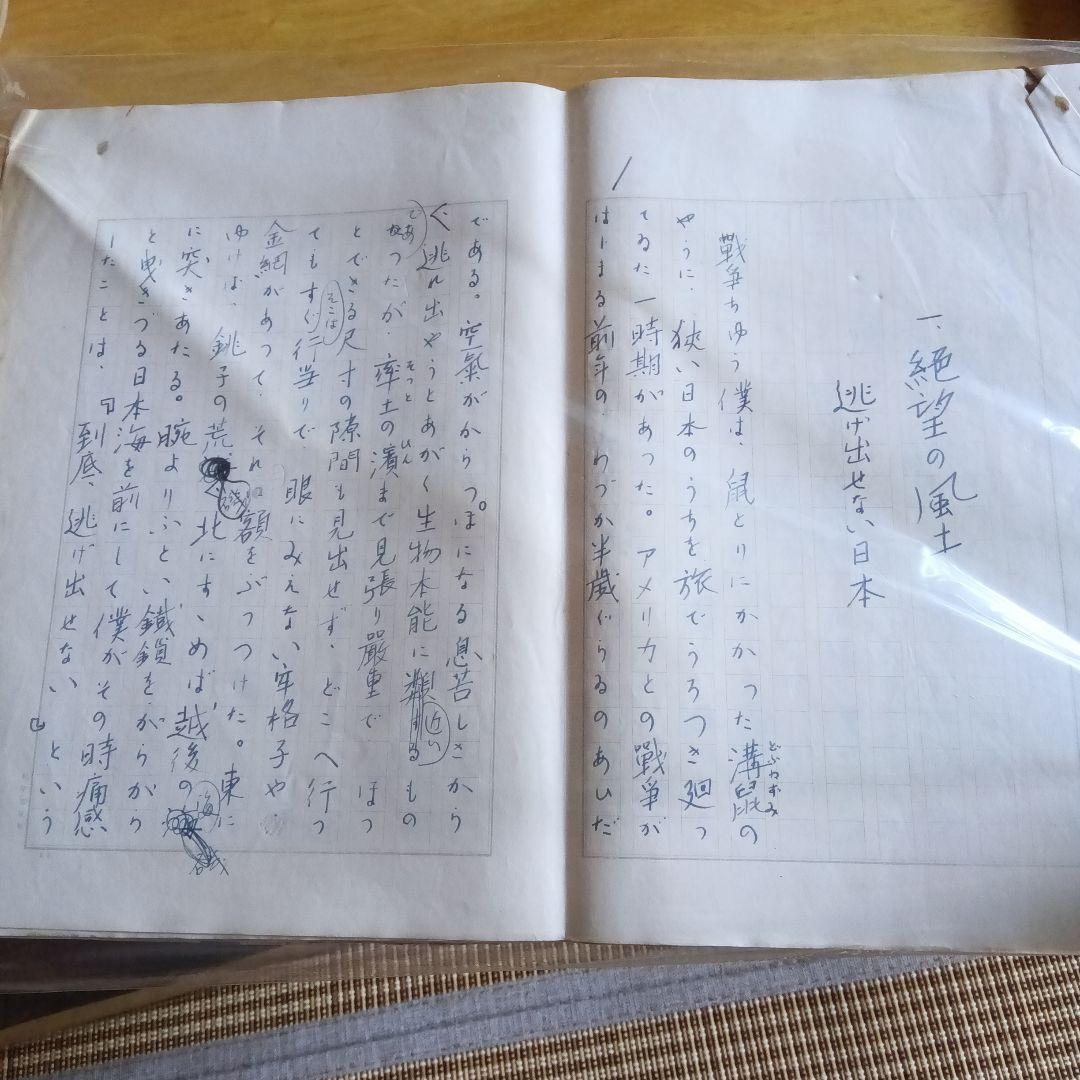 一、絕望の風土
逃げ出せない日本
戰爭ちゆう僕は、鼠とりにかかつた溝鼠の
どぶねずみ
やうに、狹い日本のうちを旅でうろつき廻つ
てゐた一時期があつた。アメリカとの戰爭が
はじまる前年の、わづか半歲ぐらゐのあひだ
である。空氣がからつぽになる息苦しさから
逃れ出やうとあがく生物本能に近いもの
であつたが、率土の濱まで見張り嚴重で、ほつ
そつと ひん
とできる尺寸の隙間も見出せず、どこへ行つ
てもすぐそこは行當りで、眼にみえない牢格子や
金網があつて、それに額をぶつつけた。東に
ゆけば、銚子の荒磯、北にすゝめば越後の海
に突きあたる。腕よりふとい鐵鎖をがらがら
と曳きづる日本海を前にして僕がその時痛感
したことは、『到底、逃げ出せない』という